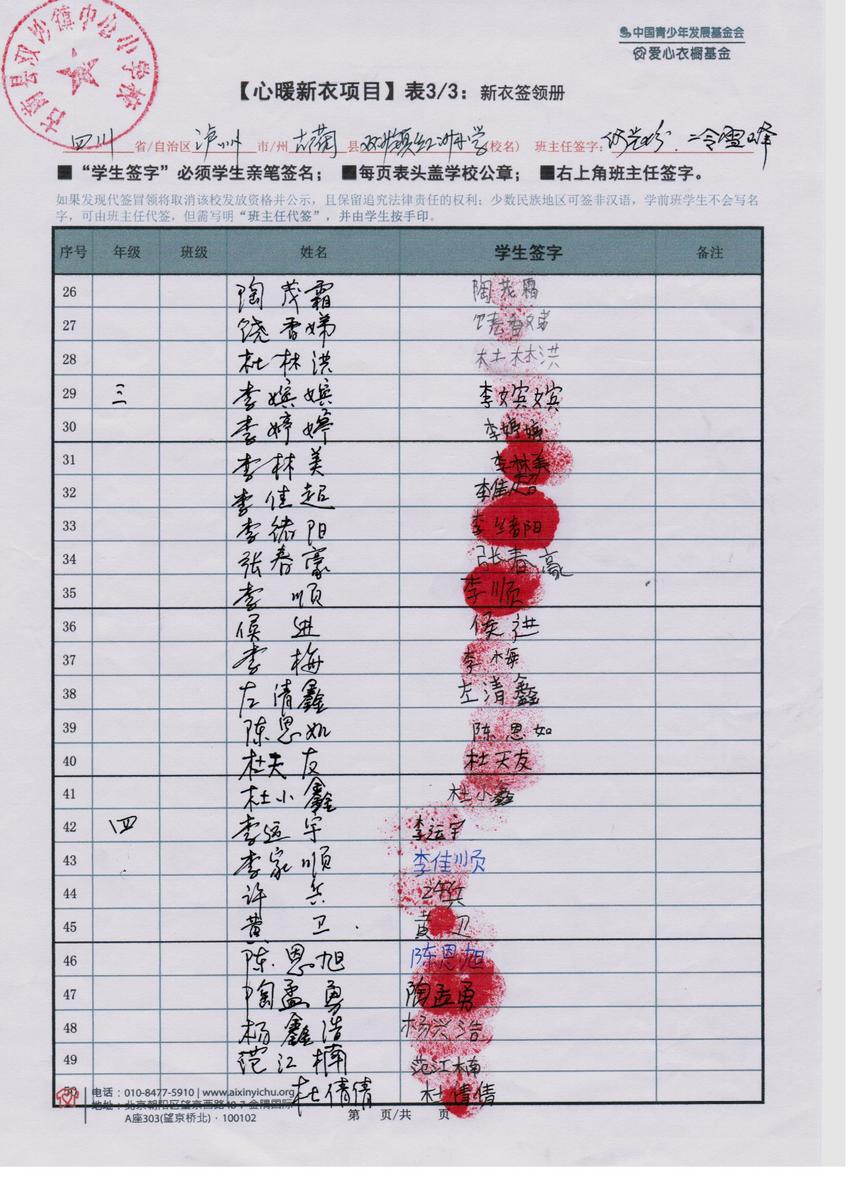 古蔺县双沙镇中心小学校
中国青少年发展基金会
爱心衣橱基金
【心暖新衣项目】表3/3：新衣签领册
四川 省/自治区 泸州 市/州 古蔺 县 (校名) 班主任签字：
■“学生签字”必须学生亲笔签名； ■每页表头盖学校公章； ■右上角班主任签字。
如果发现代签冒领将取消该校发放资格并公示，且保留追究法律责任的权利；少数民族地区可签非汉语，学前班学生不会写名
字，可由班主任代签，但需写明“班主任代签”，并由学生按手印。
序号 年级 班级 姓名 学生签字 备注
26 陶茂霜 陶茂霜
27 饶香娣 饶香娣
28 杜林洪 杜林洪
29 三 李嫔嫔 李嫔嫔
30 李婷婷 李婷婷
31 李林美 李林美
32 李佳起 李佳超
33 李绪阳 李绪阳
34 张春豪 张春豪
35 李顺 李顺
36 侯进 侯进
37 李梅 李梅
38 左清鑫 左清鑫
39 陈恩如 陈恩如
40 杜天友 杜天友
41 杜小鑫 杜小鑫
42 四 李运宇 李运宇
43 李家顺 李佳顺
44 许兵 许兵
45 黄卫 黄卫
46 陈恩旭 陈恩旭
47 陶孟勇 陶孟勇
48 杨鑫浩 杨兴浩
49 范江楠 范江楠
50 杜倩倩 杜倩倩
电话：010-8477-5910 | www.aixinyichu.org
地址：北京朝阳区望京西路48-7 金隅国际 第 页/共 页
A座303(望京桥北)·100102